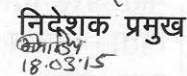 निदेशक प्रमुख
18.03.15